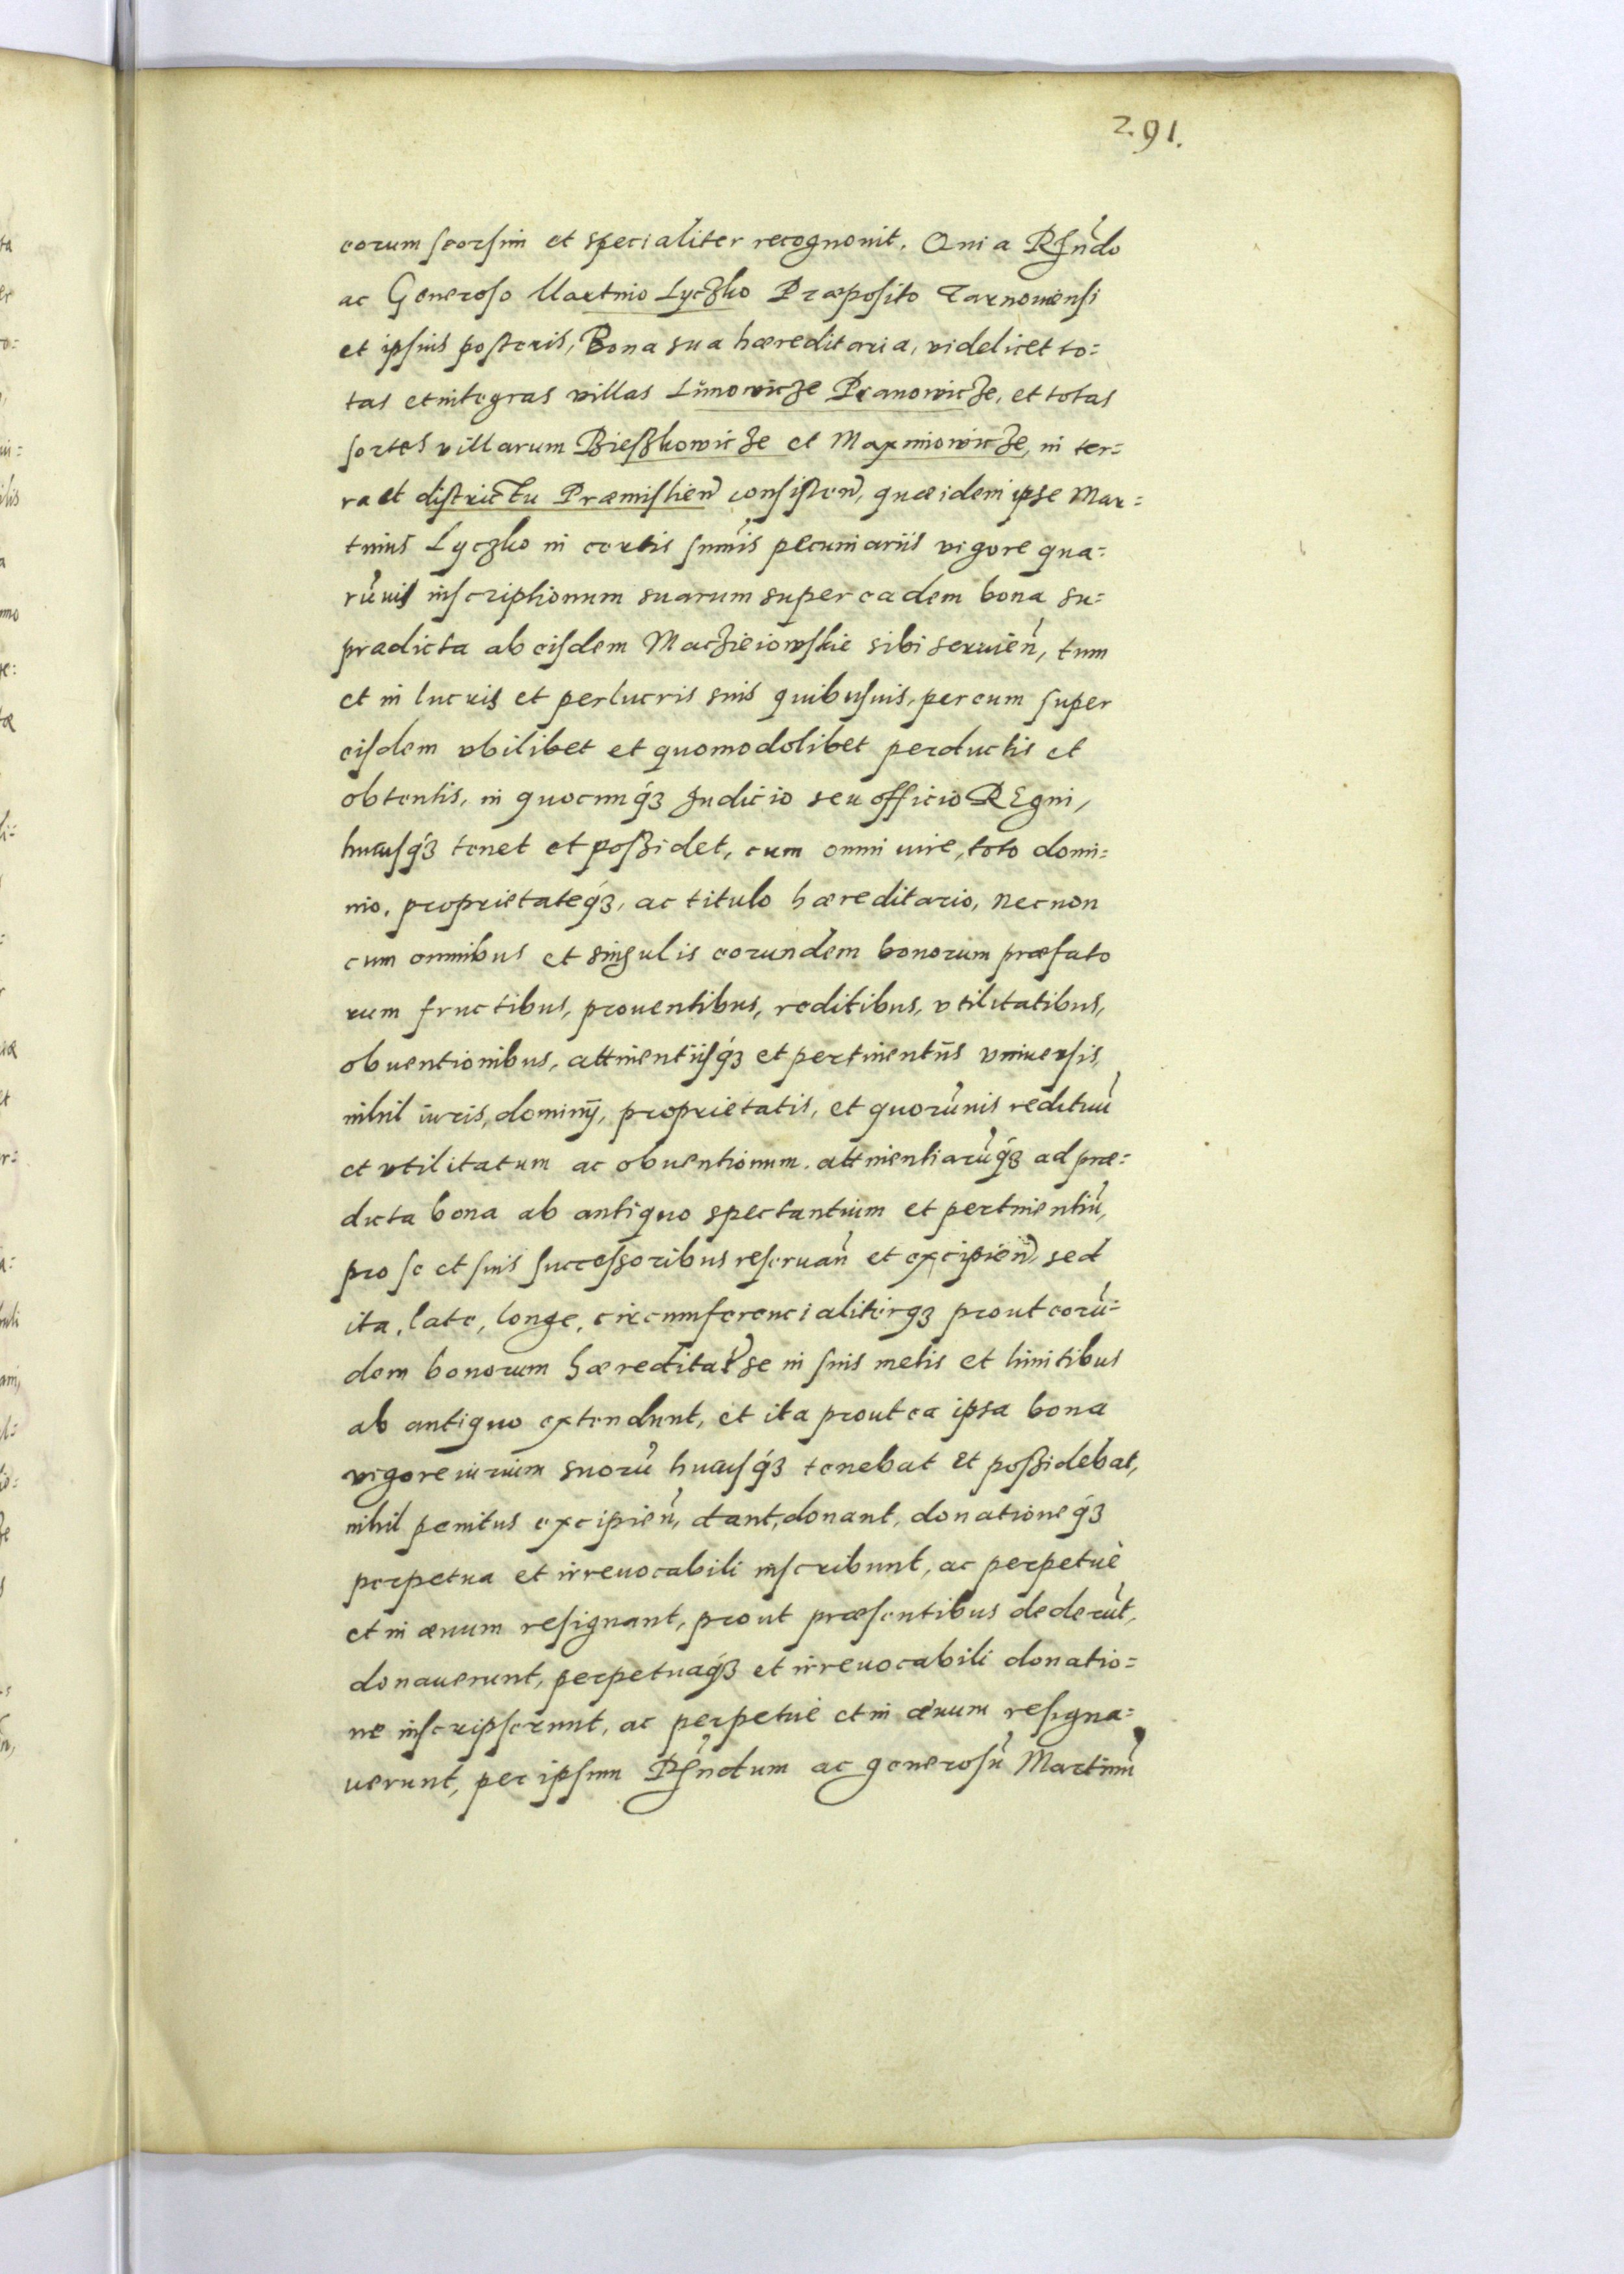 291.
eorum seorsim et specialiter recognouit. Qui a Rndo
ac Generoso Martino Lyczko Præposito Tarnouiensi
et ipsius posteris, Bona sua hæreditaria, videlicet to=
tas et integras villas Limowicze Pcanowicze, et totas
sortes villarum Bieszkowicze et Maxniowicze, in ter=
ra et districtu Præmislien consisten, quæ idem ipse Mar=
tinus Lyczko in certis sum̃is pecuniariis vigore qua=
rũuis inscriptionum suarum super eadem bona su=
pradicta ab eisdem Macżieiowskie sibi seruien, tum
et in lucris et perlucris suis quibusuis, per eum super
eisdem vbilibet et quomodolibet perductis et
obtentis, in quocunq́ꝫ Judicio seu officio REgni,
hucusq́ꝫ tenet et possidet, cum omni iure, toto domi=
nio, proprietateq́ꝫ, ac titulo hæreditario, necnon
cum omnibus et singulis eorundem bonorum præfato
rum fructibus, prouentibus, reditibus, vtilitatibus,
obuentionibus, attinentiisq́ꝫ et pertinentiis vniuersis,
nihil iuris, dominij, proprietatis, et quorũuis redituũ
et vtilitatum ac obuentionum, attinentiarũq́ꝫ ad præ=
dicta bona ab antiquo spectantium et pertinentiũ,
pro se et suis successoribus reseruan et excipien, sed
ita, late, longe, circumferencialiterqꝫ prout eorũ=
dem bonorum hæreditat̃ se in suis metis et limitibus
ab antiquo extendunt, et ita prout ea ipsa bona
vigore iurium suorũ hucusq́ꝫ tenebat et possidebat,
nihil penitus excipien, dant, donant, donationeq́ꝫ
perpetua et irreuocabili inscribunt, ac perpetuè
et in æuum resignant, prout præsentibus dederũt,
donauerunt, perpetuaq́ꝫ et irreuocabili donatio=
ne inscripserunt, ac perpetuè et in æuum resigna=
uerunt, per ipsum Rndum ac generosũ Martinũ